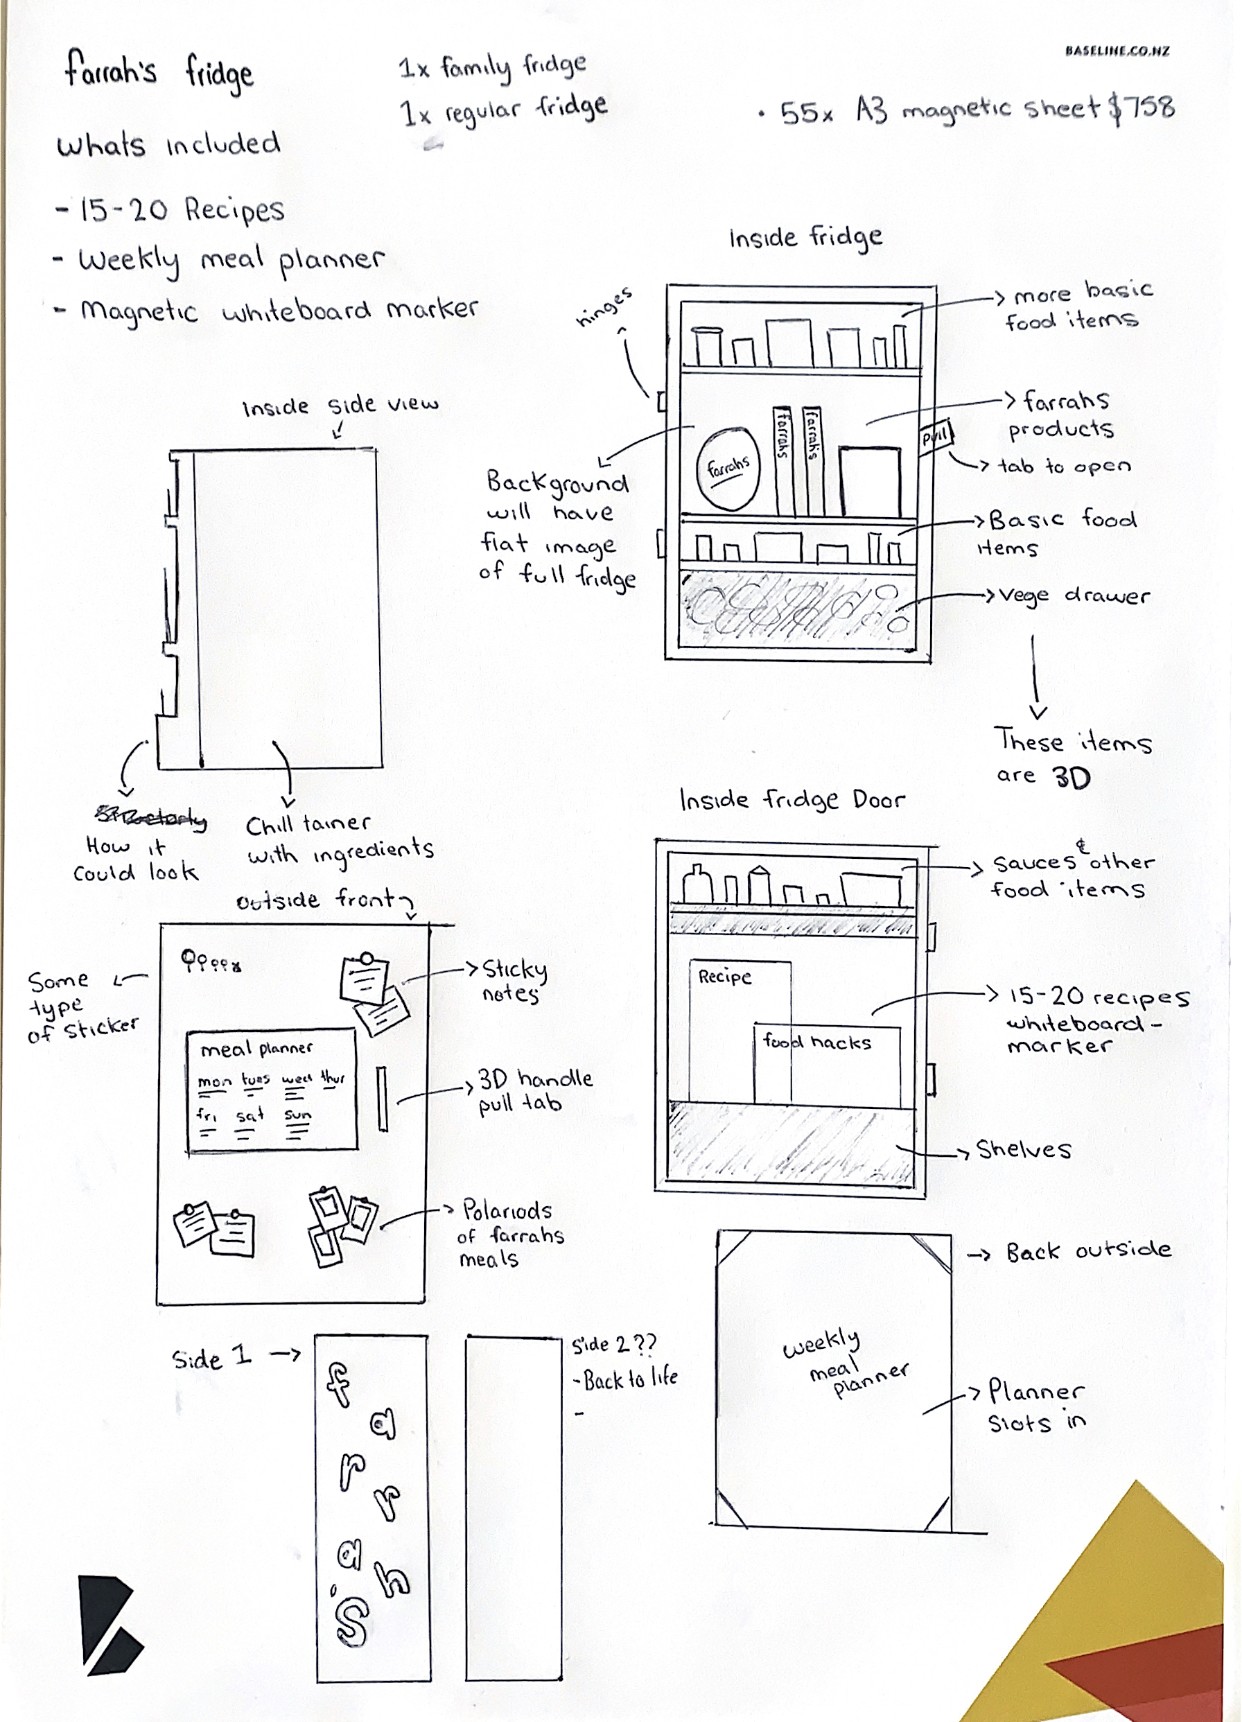 BASELINE.CO.NZ
farrah's fridge
1x family fridge
1x regular fridge
• 55x A3 magnetic sheet $758
whats included
- 15-20 Recipes
- Weekly meal planner
- Magnetic whiteboard marker
Inside fridge
hinges
more basic
food items
farrahs
products
Pull
tab to open
farrahs
farrahs
farrahs
Background
will have
flat image
of full fridge
Basic food
items
vege drawer
These items
are 3D
Inside side view
How it
could look
Chill tainer
with ingredients
Inside fridge Door
sauces & other
food items
Recipe
food hacks
15-20 recipes
whiteboard-
marker
Shelves
outside front
Some
type
of sticker
Sticky
notes
meal planner
mon tues wed thur
fri sat sun
3D handle
pull tab
Polariods
of farrahs
meals
Back outside
weekly
meal
planner
Planner
slots in
Side 1
farrah's
Side 2??
- Back to life
-